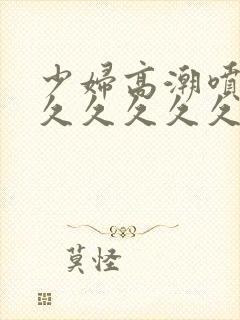 少婦高潮噴
久久久久久
莫怪